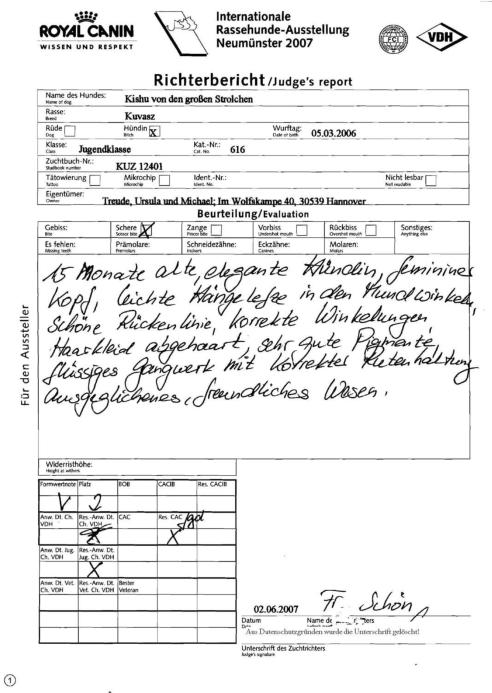 ROYAL CANIN
WISSEN UND RESPEKT
Internationale
Rassehunde-Ausstellung
Neumünster 2007
FCI
VDH
Richterbericht /Judge's report
Name des Hundes: Kishu von den großen Strolchen
Name of dog
Rasse: Kuvasz
Breed
Rüde Hündin X Wurftag: 05.03.2006
Dog Bitch Date of birth
Klasse: Jugendklasse Kat.-Nr.: 616
Class Cat. No.
Zuchtbuch-Nr.: KUZ 12401
Studbook number
Tätowierung Mikrochip Ident.-Nr.: Nicht lesbar
Tattoo Microchip Ident. No. Not readable
Eigentümer: Treude, Ursula und Michael; Im Wolfskampe 40, 30539 Hannover
Owner
Beurteilung/Evaluation
Gebiss: Schere X Zange Vorbiss Rückbiss Sonstiges:
Bite Scissor bite Pincer bite Undershot mouth Overshot mouth Anything else
Es fehlen: Prämolare: Schneidezähne: Eckzähne: Molaren:
Missing teeth Premolars Incisors Canines Molars
15 Monate alte, elegante Hündin, femininer
Kopf, leichte Hängelefze in den Mundwinkeln,
Schöne Rückenlinie, korrekte Winkelungen
Haarkleid abgehaart, sehr gute Pigmente,
flüssiges Gangwerk mit korrekter Rutenhaltung
Ausgeglichenes, freundliches Wesen.
Für den Aussteller
Widerristhöhe:
Height at withers
Formwertnote Platz BOB CACIB Res. CACIB
V 2
Anw. Dt. Ch. VDH Res.-Anw. Dt. Ch. VDH CAC Res. CAC Jgd
X
Anw. Dt. Jug. Ch. VDH Res.-Anw. Dt. Jug. Ch. VDH
X
Anw. Dt. Vet. Ch. VDH Res.-Anw. Dt. Vet. Ch. VDH Bester Veteran
02.06.2007 Fr. Schön
Datum Name de
Date
Aus Datenschutzgründen wurde die Unterschrift gelöscht!
Unterschrift des Zuchtrichters
Judge's signature
1